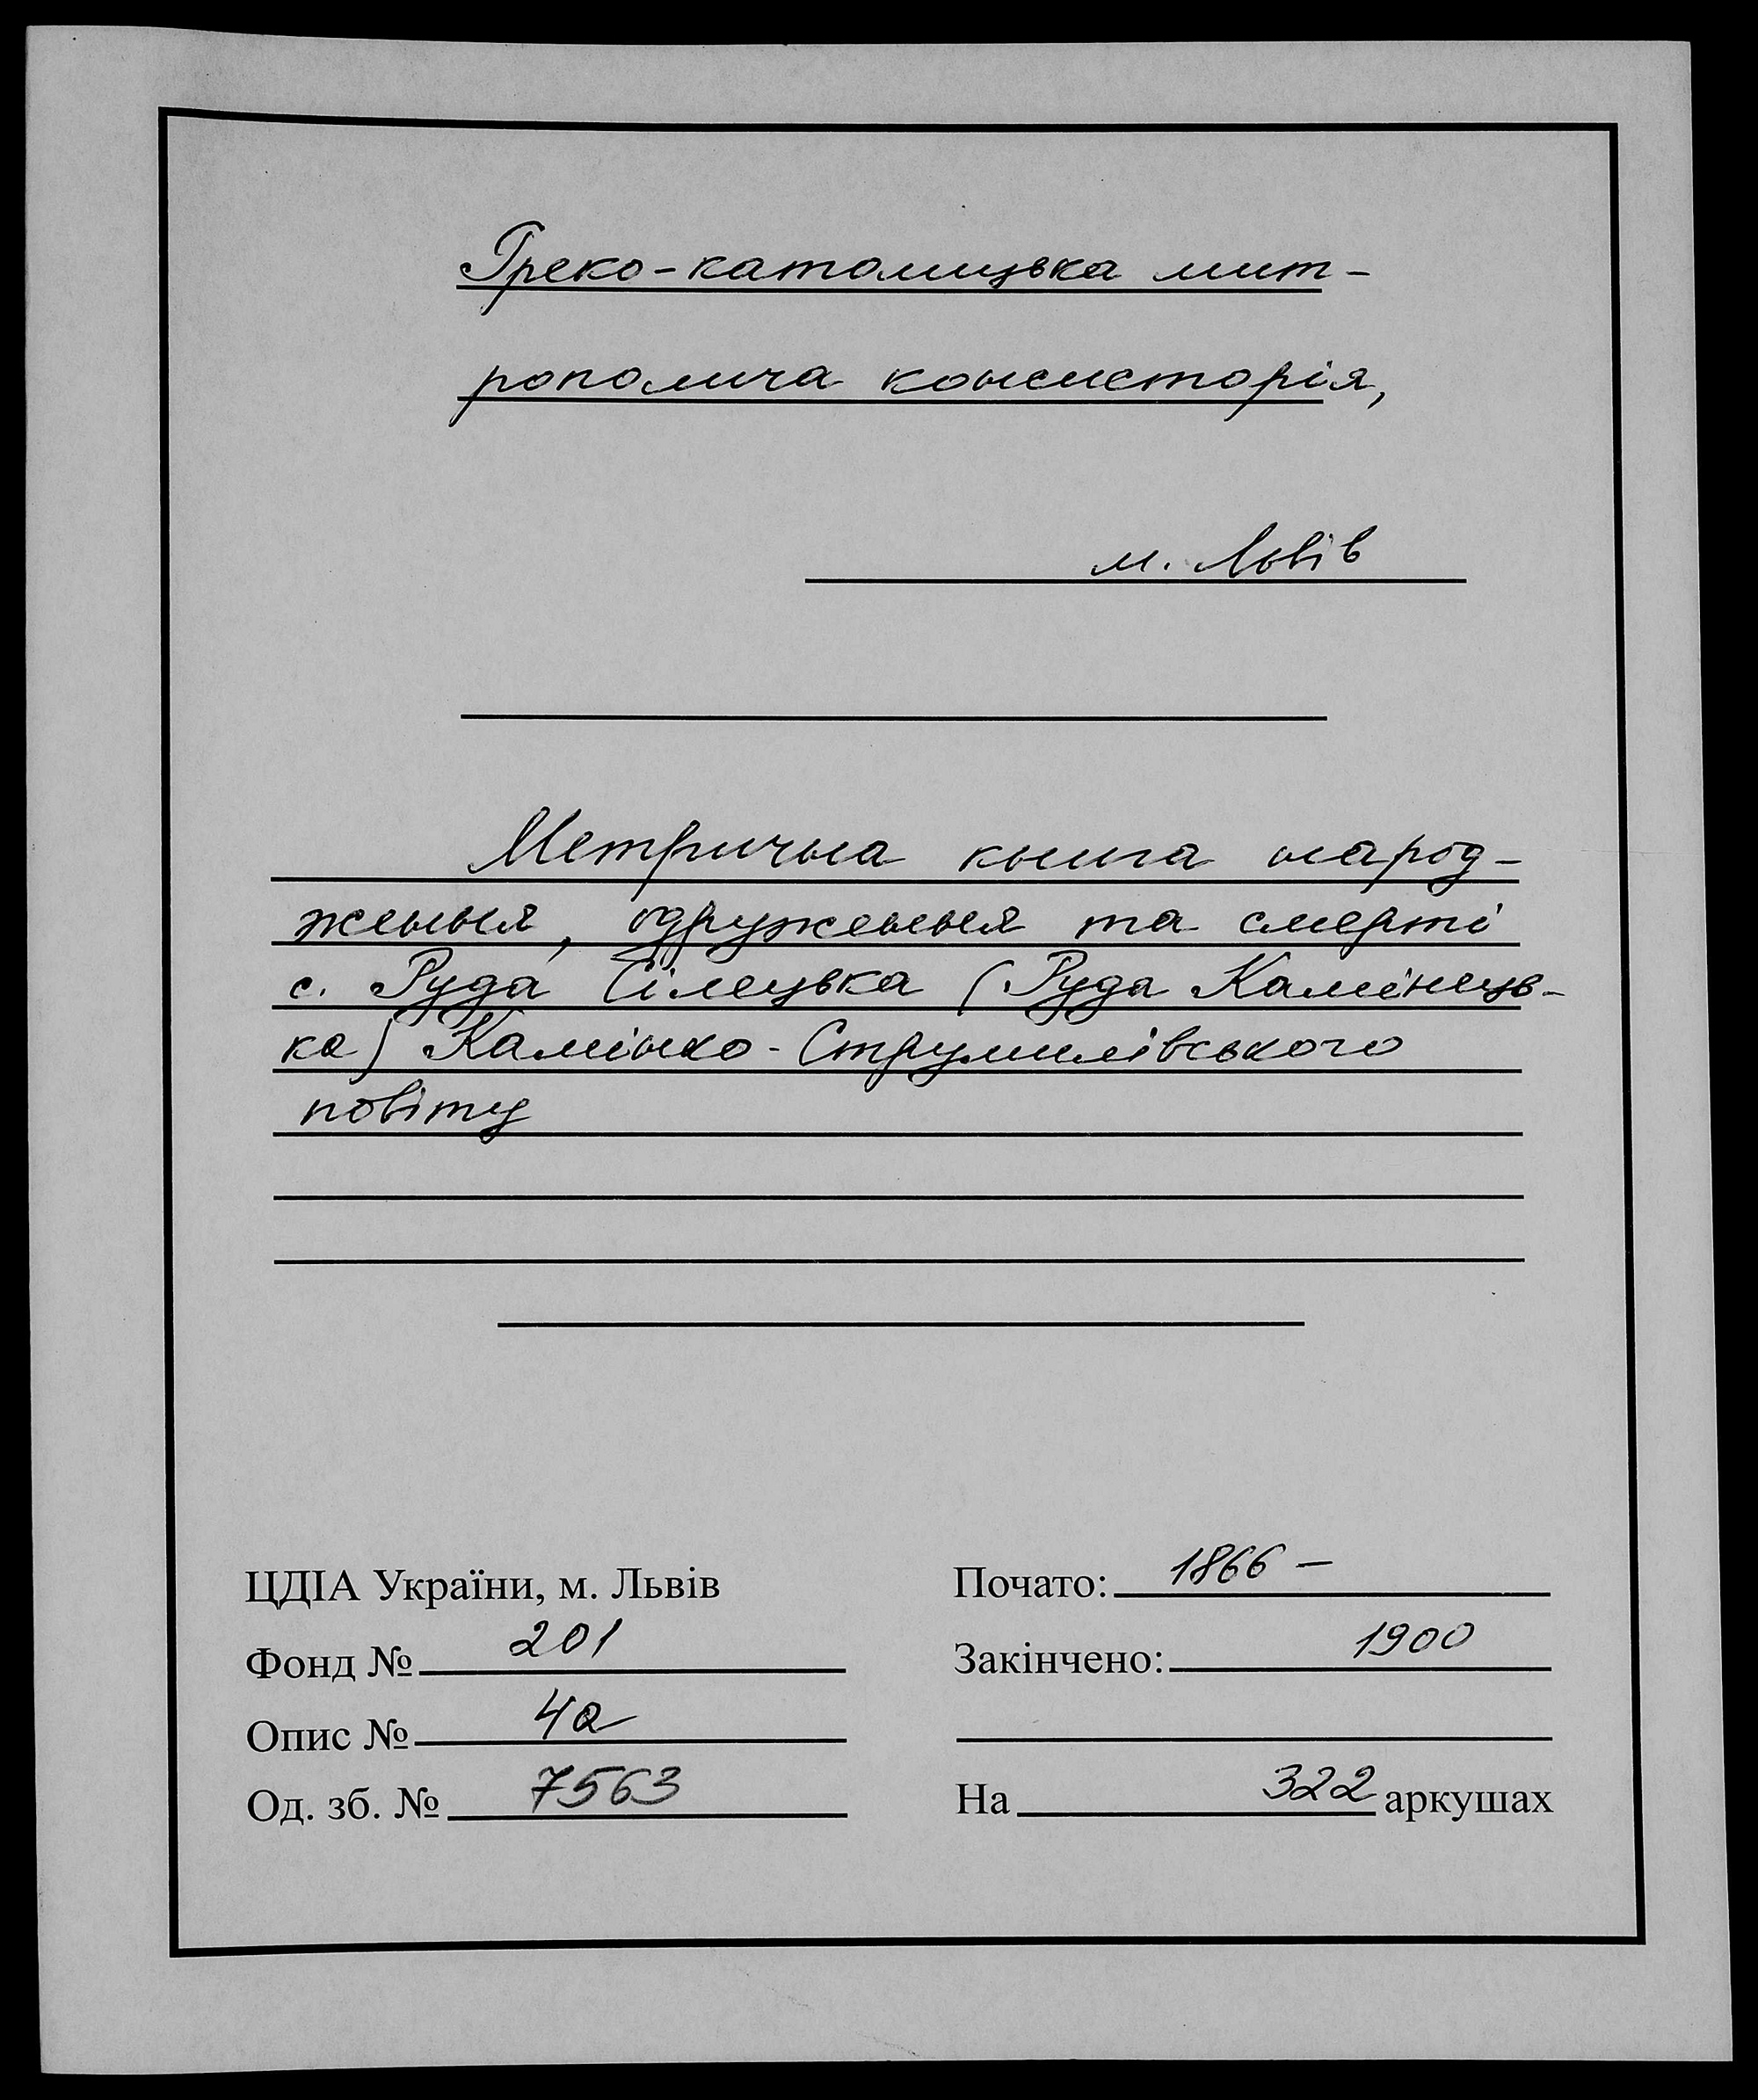 Греко-католицька мит-
рополича консисторія,
м. Львів
Метрична книга народ-
ження, одруження та смерті
с. Руда Сілецька (Руда Камінець-
ка) Камінко-Струмилівського
повіту
ЦДІА України, м. Львів
Фонд № 201
Опис № 4а
Од. зб. № 7563
Почато: 1866 –
Закінчено: 1900
На 322 аркушах